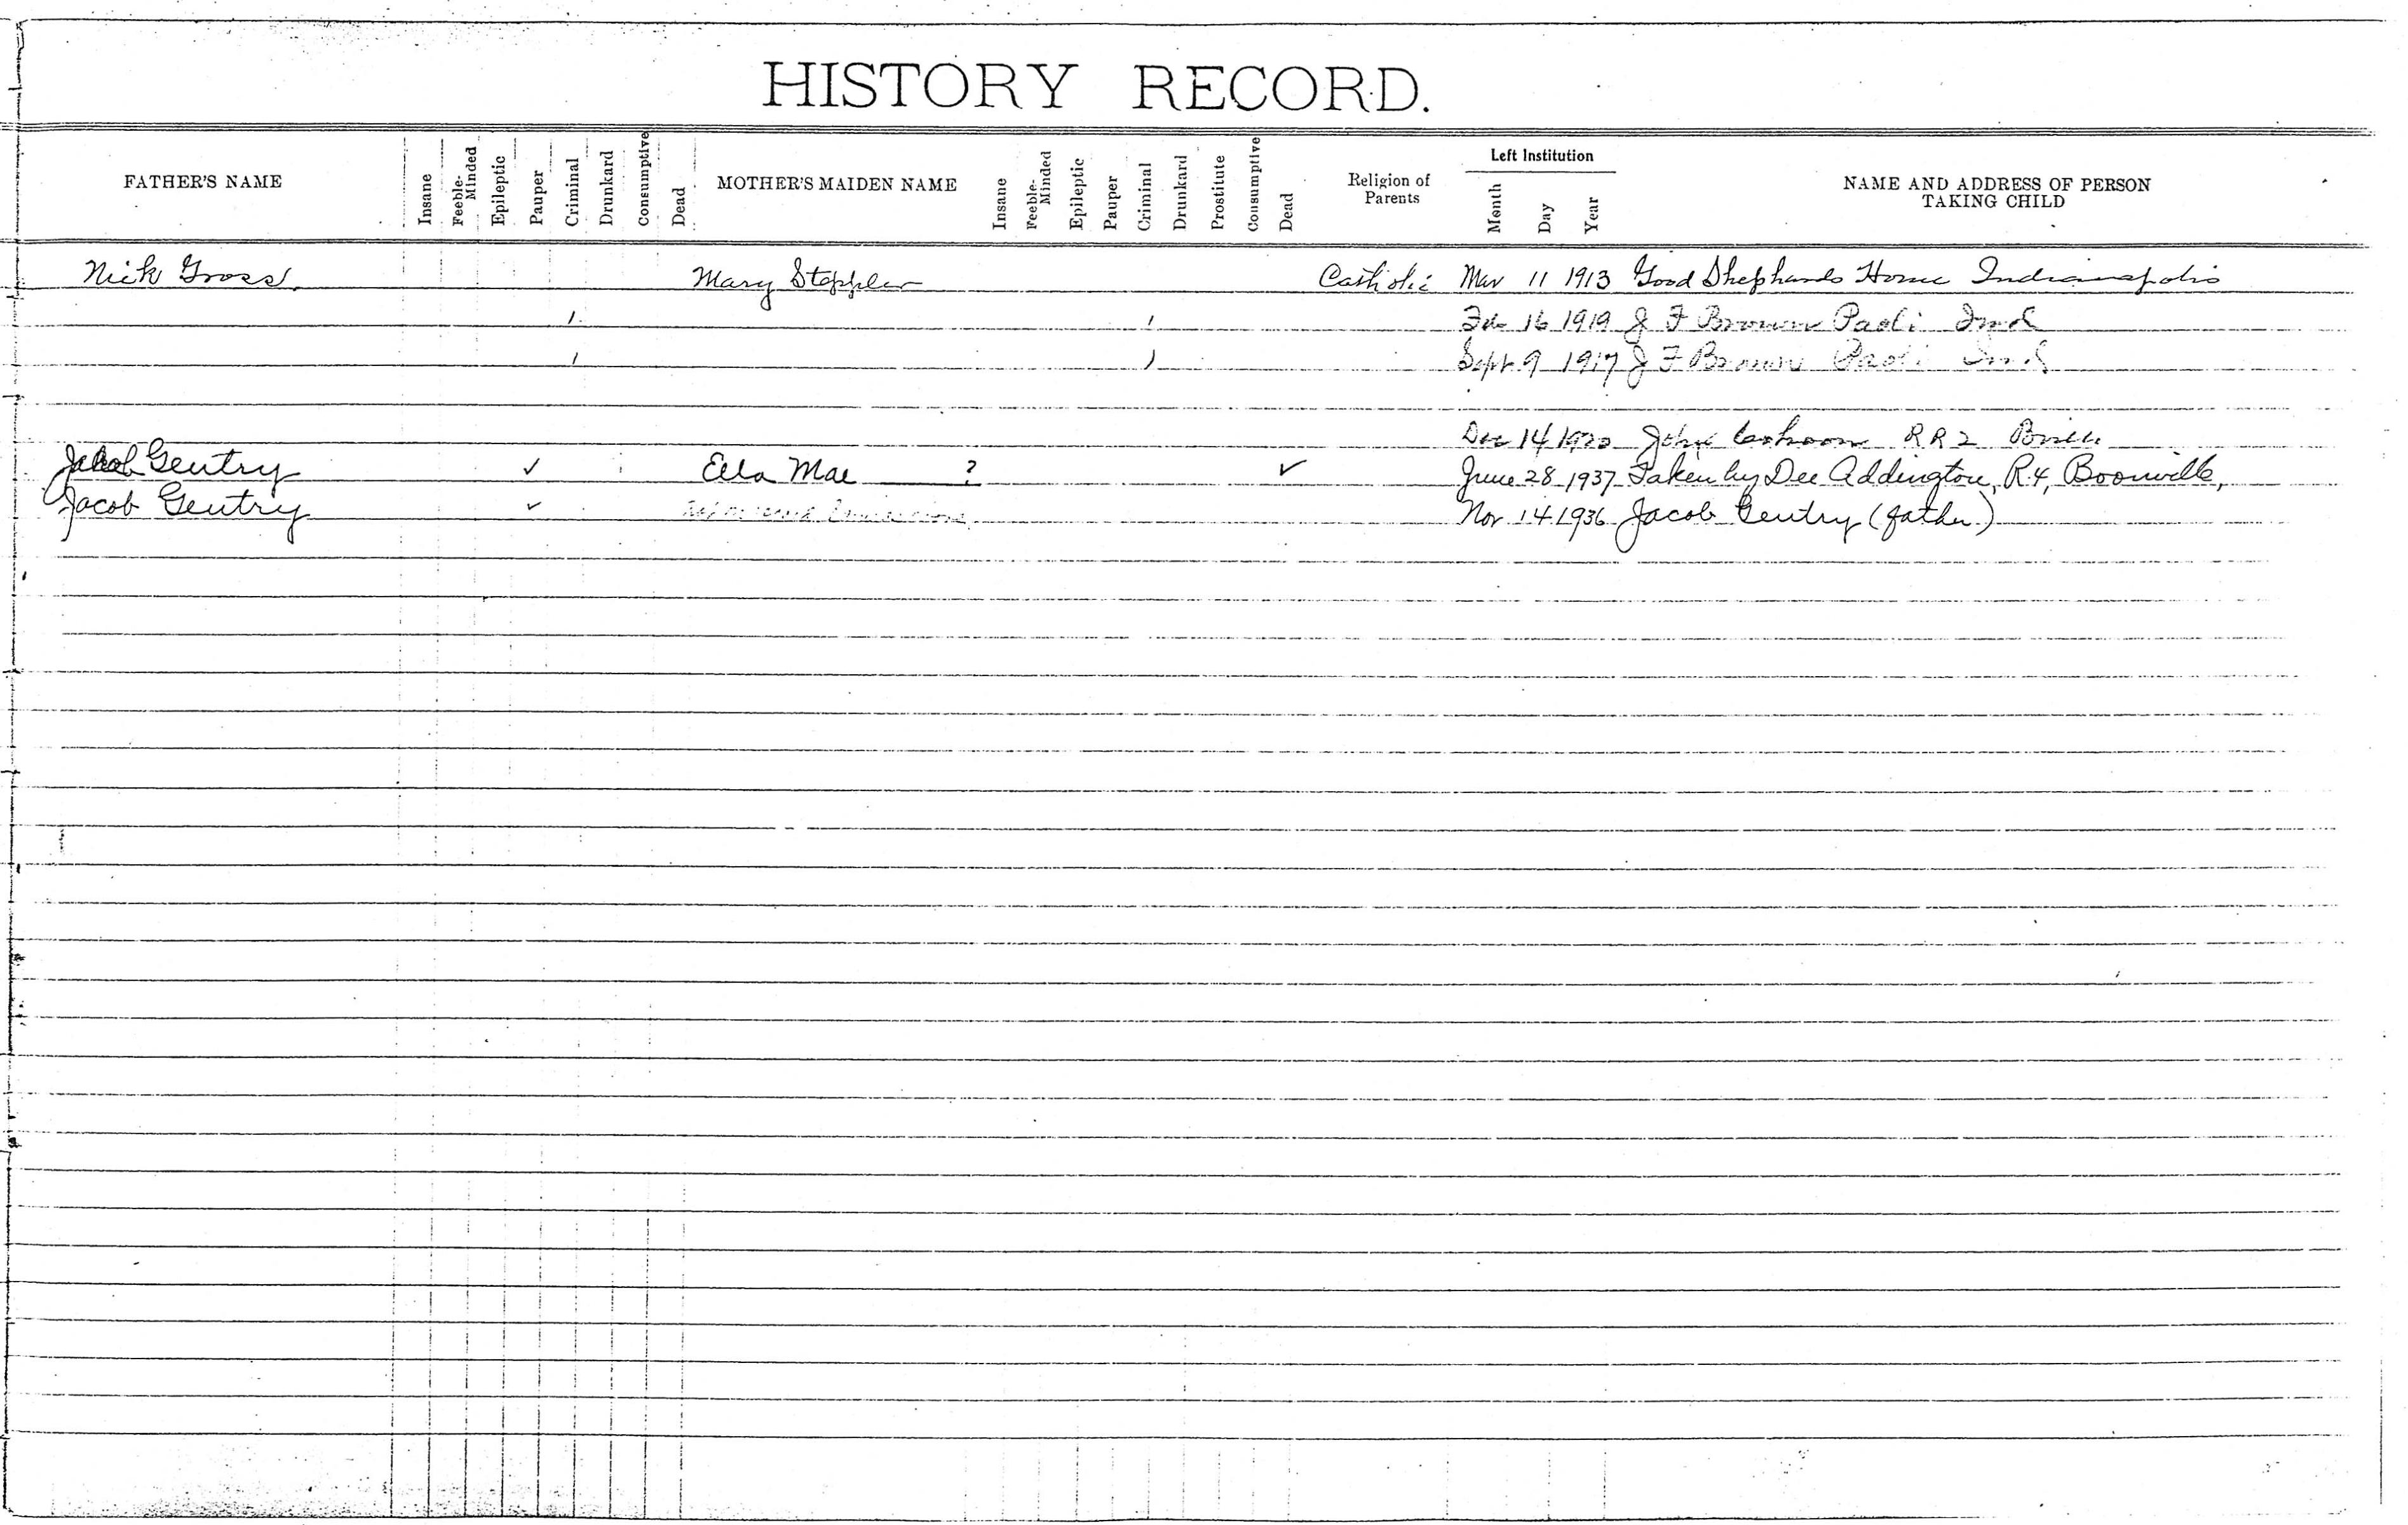 HISTORY RECORD.
FATHER'S NAME Insane Feeble-Minded Epileptic Pauper Criminal Drunkard Consumptive Dead MOTHER'S MAIDEN NAME Insane Feeble-Minded Epileptic Pauper Criminal Drunkard Prostitute Consumptive Dead Religion of Parents Left Institution Month Day Year NAME AND ADDRESS OF PERSON TAKING CHILD
Nick Gross Mary Steppler Catholic Mar 11 1913 Good Shephards Home Indianapolis
/ / Feb 16 1919 J F Brown Paoli Ind
/ / Sept 9 1917 J F Brown Paoli Ind
Dec 14 1920 John RR2
Jacob Gentry ✓ Ella Mae ? ✓ June 28 1937 Taken by Dee Addington, R.4, Boonville,
Jacob Gentry ✓ Nov 14 1936 Jacob Gentry (father)